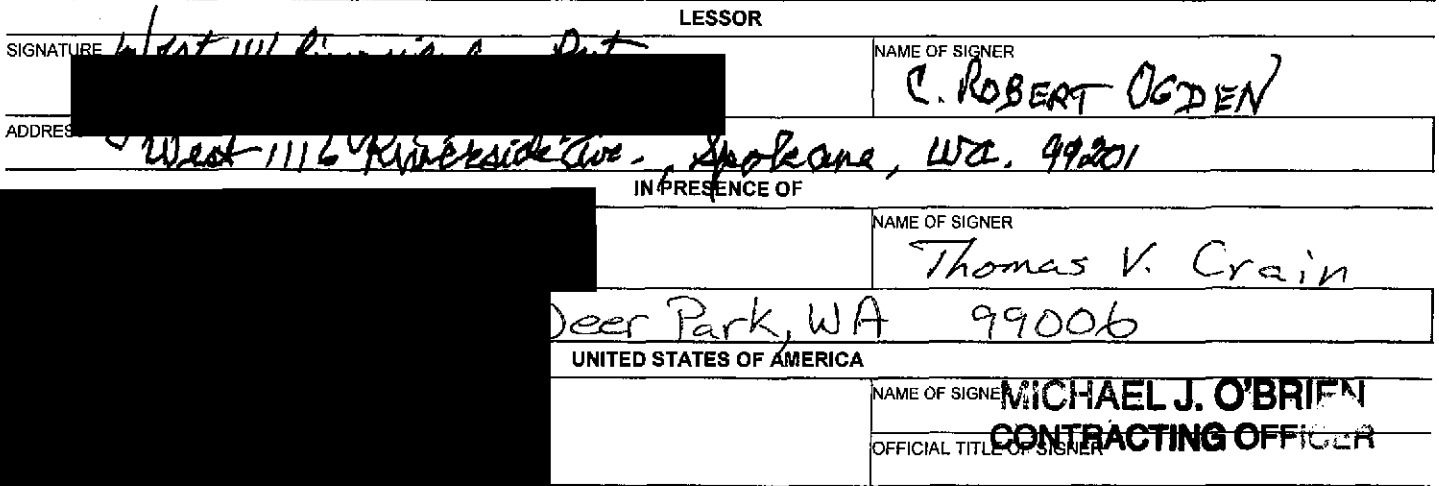 LESSOR
SIGNATURE West 1111 Riverside
NAME OF SIGNER
C. ROBERT OGDEN
ADDRES
West 1116 Riverside Ave., Spokane, WA. 99201
IN PRESENCE OF
NAME OF SIGNER
Thomas V. Crain
Deer Park, WA 99006
UNITED STATES OF AMERICA
NAME OF SIGNE MICHAEL J. O'BRIEN
OFFICIAL TITLE OF SIGNER CONTRACTING OFFICER